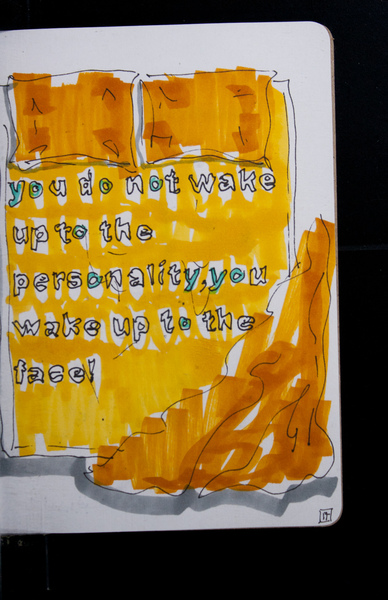 you do not wake
up to the
personality, you
wake up to the
face!